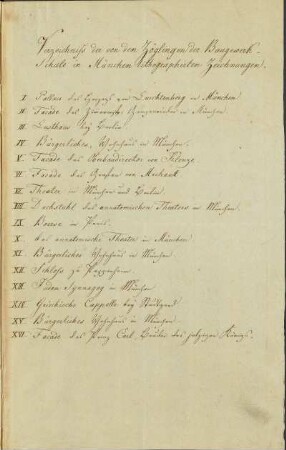 Verzeichniss der von den Zöglingen der Baugewerk-
Schule in München lithographirten Zeichnungen.
I Pallais des Herzogs von Leuchtenberg in München
II Facade des in München
III Landhaus bey Berlin
IV. Bürgerliches Wohnhaus in München.
V. Facade des von Klenze
VI Facade des Grafen von Mejean
VII Theater in München und Berlin
VIII Dachstuhl des anatomischen Theaters in München.
IX Boerse in Paris.
X das anatomische Theater in München
XI Bürgerliches Wohnhaus in München
XII Schloss zu Pappenheim
XIII Juden Synagog in München
XIV Griechische Cappelle bey Stuttgart
XV. Bürgerliches Wohnhaus in München
XVI Facade des Prinz Carl, Bruder des jetzigen Königs.